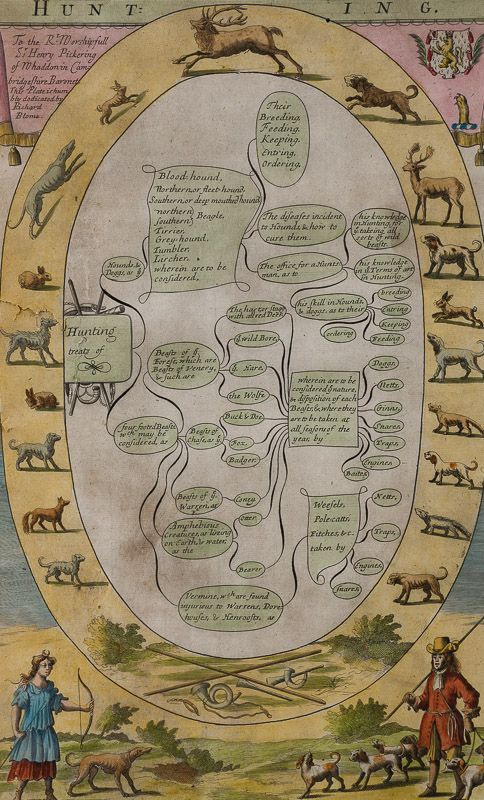 HUNT: ING.
To the Rt. Worshipfull
Sr. Henry Pickering
of Whaddon in Cam=
bridgeshire Baronett
This Plate is hum=
bly dedicated by
Richard
Blome.
Hunting
treats of
Hounds &
Doggs, as ye
Blood-hound,
Northern, or fleet-hound,
Southern, or deep mouthed hound,
northern
southern
Beagle,
Tirrier,
Grey-hound,
Tumbler,
Lircher.
wherein are to be
considered,
Their
Breeding.
Feeding.
Keeping.
Entring,
Ordering.
The diseases incident
to Hounds, & how to
cure them.
The office for a Hunts-
man, as to
his knowledge
in Hunting, &
ye takeing all
sorts of wild
beasts.
his knowledge
in ye Terms of art
in Hunting.
his skill in Hounds,
& doggs; as to their
breeding
Entring
Keeping
Feeding
ordering
four footed Beasts
wch may be
considered, as
Beasts of ye
Forest, which are
Beasts of Venery,
& such are
with all red Deer
ye wild Bore,
ye Hare,
the Wolfe
Beasts of
Chase, as ye
Buck & Doe
Fox,
Badger,
wherein are to be
considered ye nature,
& disposition of each
Beasts, & where they
are to be taken at
all season of the
year, by
Doggs,
Netts,
Ginns,
Snares,
Traps,
Engines,
Baites,
Beasts of ye
Warren, as
Coney
Amphibious
Creatures, as liveing
on Earth, & water,
as the
Otter
Beaver
Vermine, wch are found
injurious to Warrens, Dove-
houses, & Henroosts, as
Weesels,
Pole-catts
Fitches, & c.
taken by
Netts,
Traps,
Engines,
Snares,